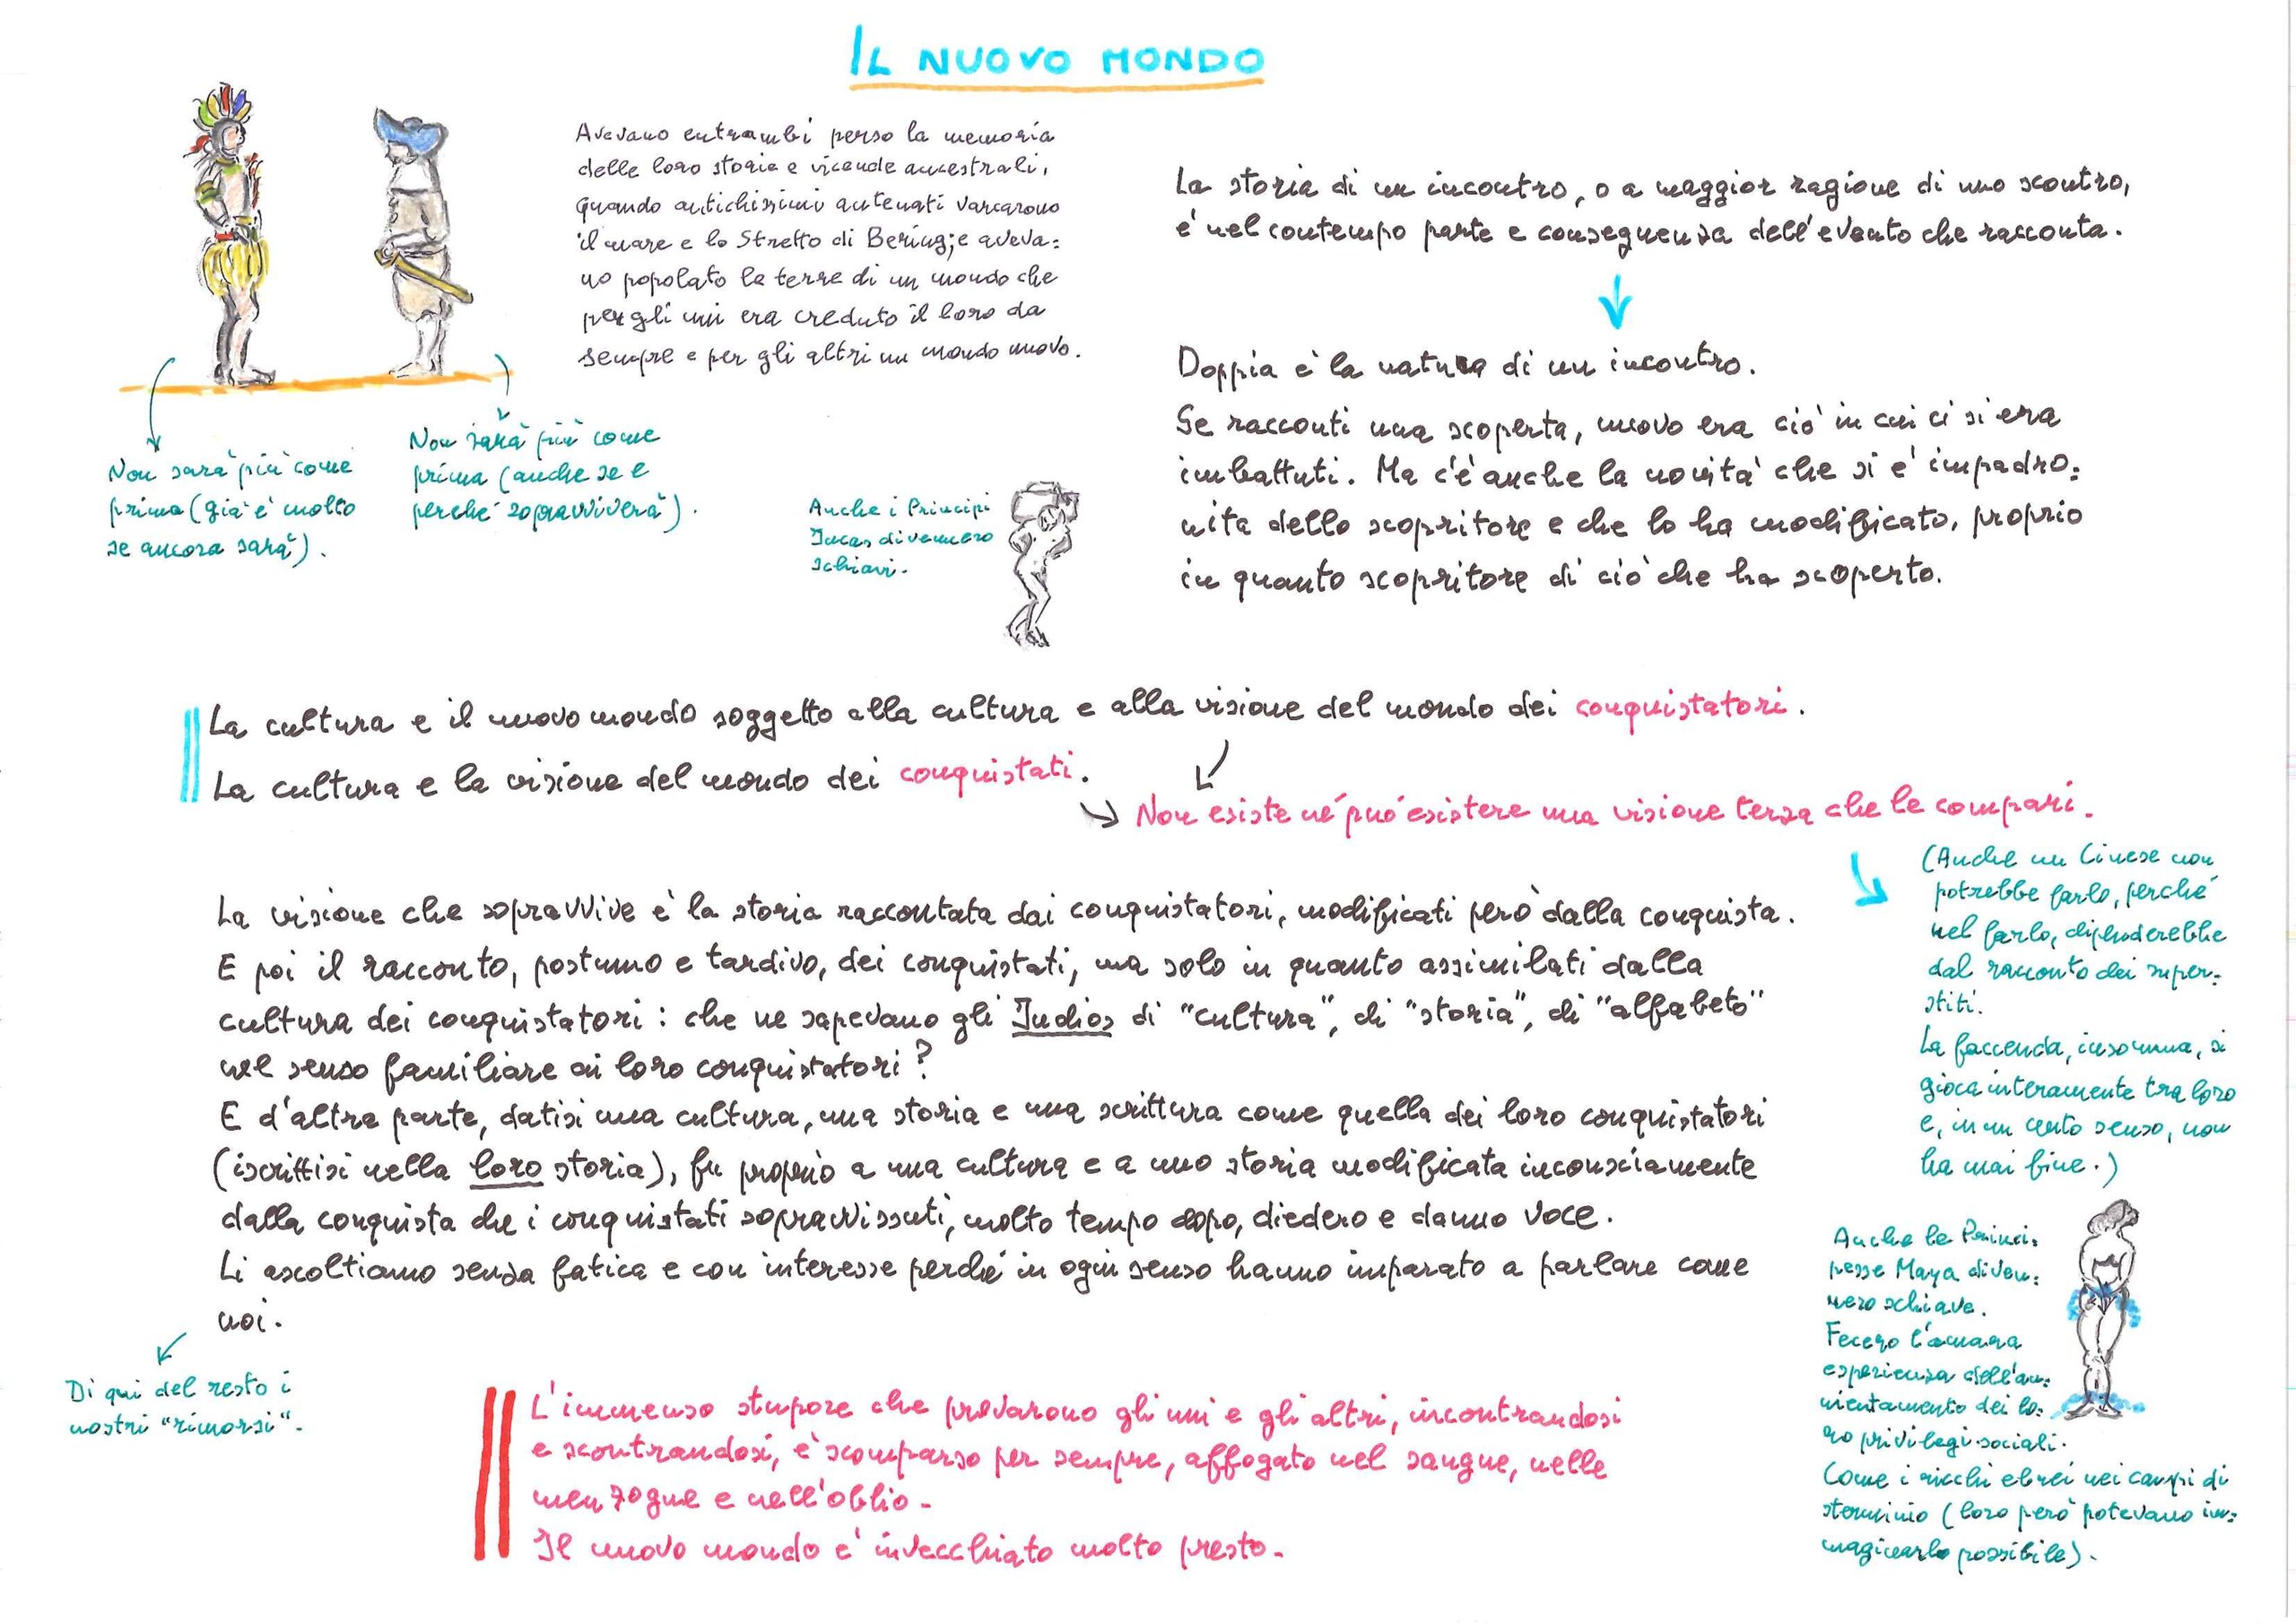 IL NUOVO MONDO
Avevano entrambi perso la memoria
delle loro storie e vicende ancestrali,
quando antichissimi antenati varcarono
il mare e lo Stretto di Bering; e aveva=
no popolato le terre di un mondo che
per gli uni era creduto il loro da
sempre e per gli altri un mondo nuovo.
Non sarà più come
prima (già è molto
se ancora sarà).
Non sarà più come
prima (anche se e
perché sopravviverà).
Anche i Principi
Incas divennero
schiavi.
La storia di un incontro, o a maggior ragione di uno scontro,
è nel contempo parte e conseguenza dell'evento che racconta.
Doppia è la natura di un incontro.
Se racconti una scoperta, nuovo era ciò in cui ci si era
imbattuti. Ma c'è anche la novità che si è impadro=
nita dello scopritore e che lo ha modificato, proprio
in quanto scopritore di ciò che ha scoperto.
La cultura e il nuovo mondo soggetto alla cultura e alla visione del mondo dei conquistatori.
La cultura e la visione del mondo dei conquistati.
Non esiste né può esistere una visione terza che le compari.
(Anche un Cinese non
potrebbe farlo, perché
nel farlo, dipenderebbe
dal racconto dei super=
stiti.
La faccenda, insomma, si
gioca interamente tra loro
e, in un certo senso, non
ha mai fine.)
La visione che sopravvive è la storia raccontata dai conquistatori, modificati però dalla conquista.
E poi il racconto, postumo e tardivo, dei conquistati, ma solo in quanto assimilati dalla
cultura dei conquistatori: che ne sapevano gli Indios di "cultura", di "storia", di "alfabeto"
nel senso familiare ai loro conquistatori?
E d'altra parte, datisi una cultura, una storia e una scrittura come quella dei loro conquistatori
(iscrittisi nella loro storia), fu proprio a una cultura e a uno storia modificata inconsciamente
dalla conquista che i conquistati sopravvissuti, molto tempo dopo, diedero e danno voce.
Li ascoltiamo senza fatica e con interesse perché in ogni senso hanno imparato a parlare come
noi.
Di qui del resto i
nostri "rimorsi".
Anche le Princi=
pesse Maya diven=
nero schiave.
Fecero l'amara
esperienza dell'an=
nientamento dei lo=
ro privilegi sociali.
Come i ricchi ebrei nei campi di
sterminio (loro però potevano im=
maginarlo possibile).
L'immenso stupore che provarono gli uni e gli altri, incontrandosi
e scontrandosi, è scomparso per sempre, affogato nel sangue, nelle
menzogne e nell'oblio.
Il nuovo mondo è invecchiato molto presto.